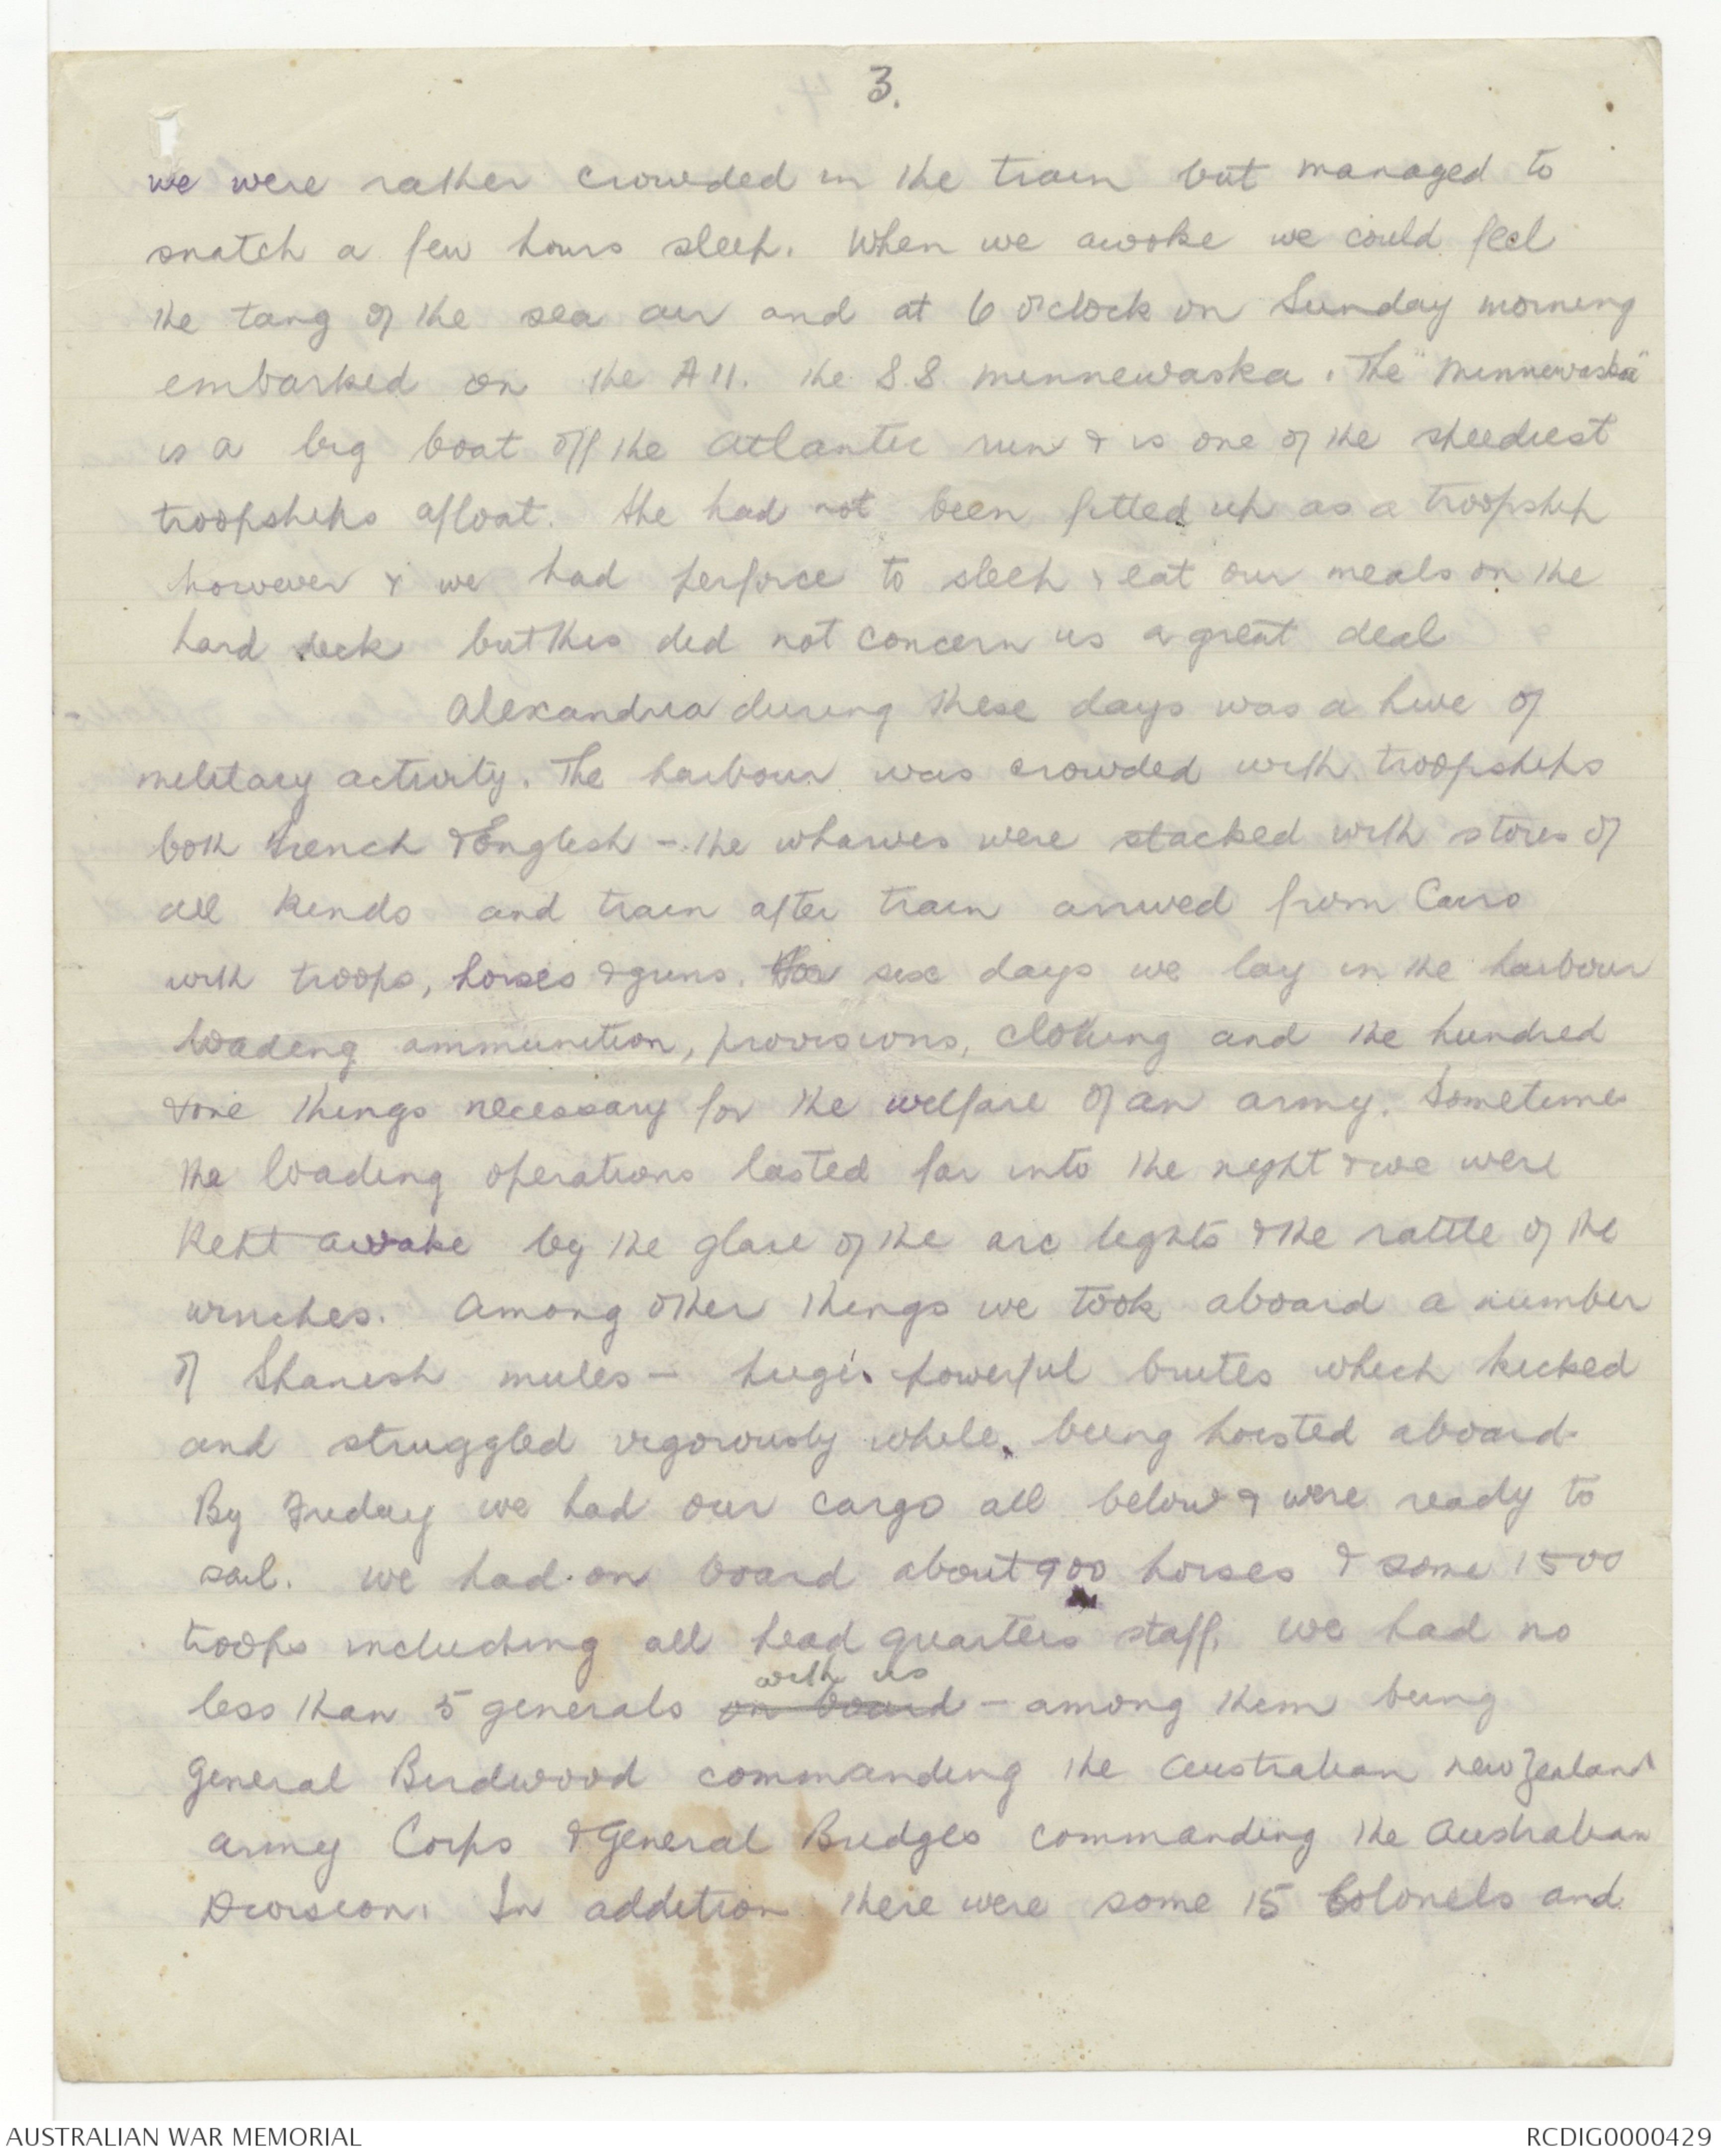 3.
we were rather crowded in the train but managed to
snatch a few hours sleep. When we awoke we could feel
the tang of the sea air and at 6 o'clock on Sunday morning
embarked on the A11. the S.S. Minnewaska. The "Minnewaska"
is a big boat off the Atlantic run & is one of the speediest
troopships afloat. She had not been fitted up as a troopship
however & we had perforce to sleep & eat our meals on the
hard deck but this did not concern us a great deal
Alexandria during these days was a hive of
military activity. The harbour was crowded with troopships
both French & English - the wharves were stacked with stores of
all kinds and train after train arrived from Cairo
with troops, horses & guns. For six days we lay in the harbour
loading ammunition, provisions, clothing and the hundred
& one things necessary for the welfare of an army. Sometimes
the loading operations lasted far into the night & we were
kept awake by the glare of the arc lights & the rattle of the
winches. Among other things we took aboard a number
of Spanish mules - huge powerful brutes which kicked
and struggled vigorously while being hoisted aboard.
By Friday we had our cargo all below & were ready to
sail. We had on board about 900 horses & some 1500
troops including all head quarters staff. We had no
with us
less than 5 generals on board - among them being
General Birdwood commanding the Australian New Zealand
Army Corps & General Bridges commanding the Australian
Division. In addition there were some 15 Colonels and
AUSTRALIAN WAR MEMORIAL
RCDIG0000429